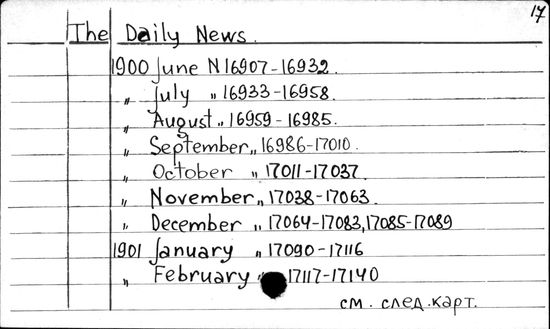 17
The Daily News.
1900 June N 16907-16932.
„ July „ 16933-16958.
„ August „ 16959-16985.
„ September „ 16986-17010.
„ October „ 17011-17037.
„ November „ 17038-17063.
„ December „ 17064-17083, 17085-17089
1901 January „ 17090-17116
„ February „ 17117-17140
см. след. карт.